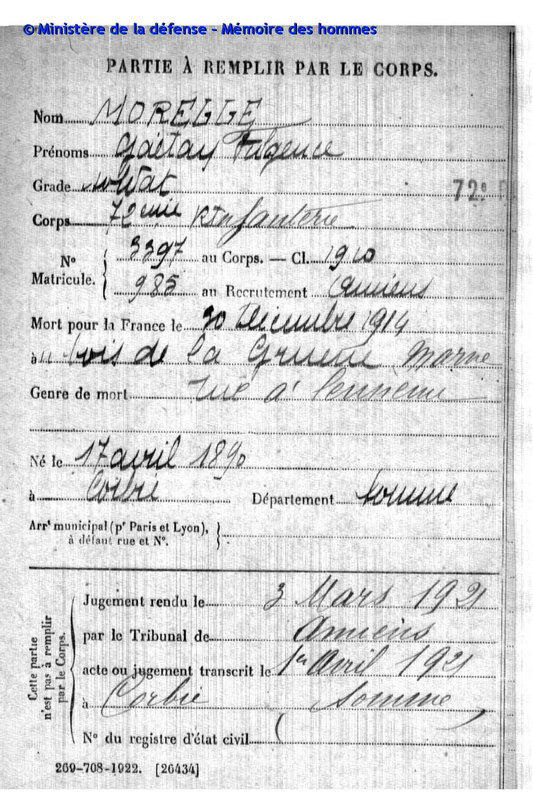 © Ministère de la défense - Mémoire des hommes
PARTIE À REMPLIR PAR LE CORPS.
Nom MOREGGE
Prénoms Gaëtan Fulgence
Grade soldat
72e
Corps 72eme Rt Infanterie
No Matricule. 3397 au Corps. — Cl. 1910
985 au Recrutement Amiens
Mort pour la France le 30 Décembre 1914
à bois de la Grurie Marne
Genre de mort Tué à l'ennemi
Né le 17 avril 1890
à Corbie Département Somme
Arrt municipal (pr Paris et Lyon),
à défaut rue et No.
Cette partie
n'est pas à remplir
par le Corps.
Jugement rendu le 3 Mars 1921
par le Tribunal de Amiens
acte ou jugement transcrit le 1er Avril 1921
à Corbie Somme
No du registre d'état civil
269-708-1922. [26434]